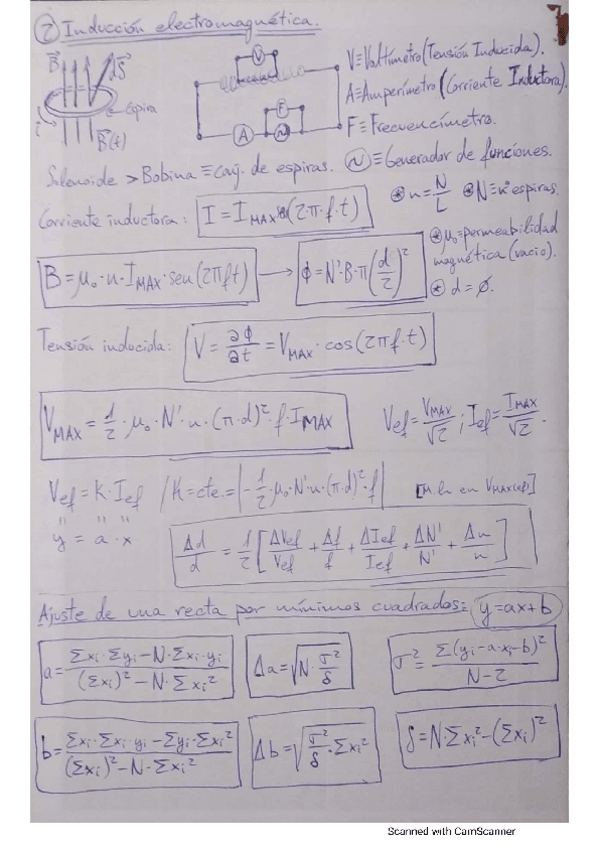 ② Inducción electromagnética.
B S
V
V≡Voltímetro (Tensión Inducida).
A≡Amperímetro (Corriente Inductora).
F≡Frecuencímetro.
i espira
B(t)
F
A
Solenoide > Bobina ≡ conj. de espiras.
≡Generador de funciones.
⊛ n=N/L ⊛ N≡nº espiras.
Corriente inductora: I=I_MAX sen(2π·f·t)
⊛ μ₀≡permeabilidad magnética (vacío).
B=μ₀·n·I_MAX·sen(2πft) → ϕ=N'·B·π(d/2)²
⊛ d=∅.
Tensión inducida: V=∂ϕ/∂t=V_MAX·cos(2πf·t)
V_MAX=1/2·μ₀·N'·n·(π·d)²·f·I_MAX
Vef=V_MAX/√2; Ief=I_MAX/√2.
Vef=K·Ief /K=cte.=|-1/2·μ₀·N'·n·(π·d)²·f|
y = a·x
Δd/d=1/2[ΔVef/Vef+Δf/f+ΔIef/Ief+ΔN'/N'+Δn/n]
Ajuste de una recta por mínimos cuadrados: y=ax+b
a=(Σxi·Σyi-N·Σxi·yi)/((Σxi)²-N·Σxi²) Δa=√(N·σ²/δ) σ²=Σ(yi-a·xi-b)²/(N-2)
b=(Σxi·Σxi·yi-Σyi·Σxi²)/((Σxi)²-N·Σxi²) Δb=√(σ²/δ·Σxi²) δ=N·Σxi²-(Σxi)²
Scanned with CamScanner